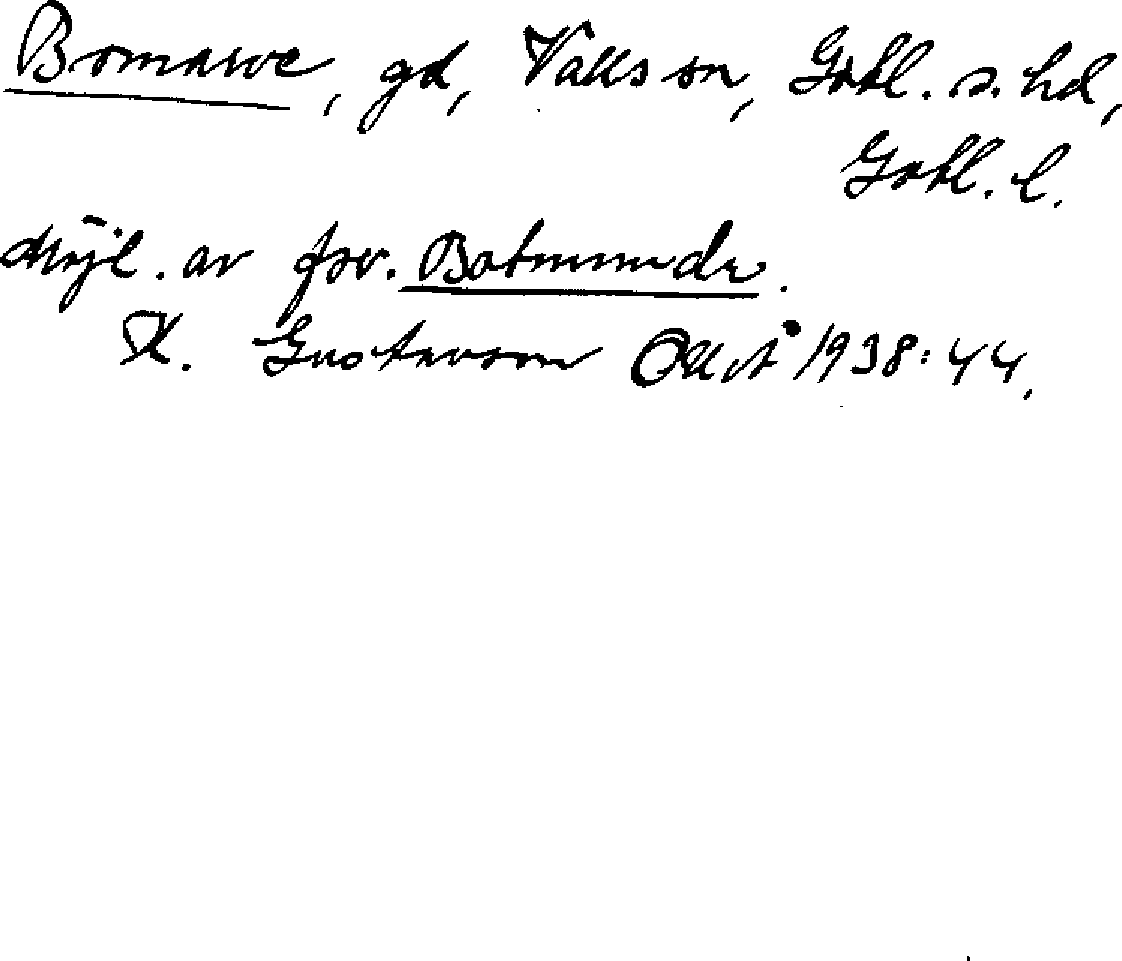 Bomarve, gd, Valls sn, Gotl. s. hd,
Gotl. l.
möjl. av fsv. Botmundr.
H. Gustavson 1938:44.